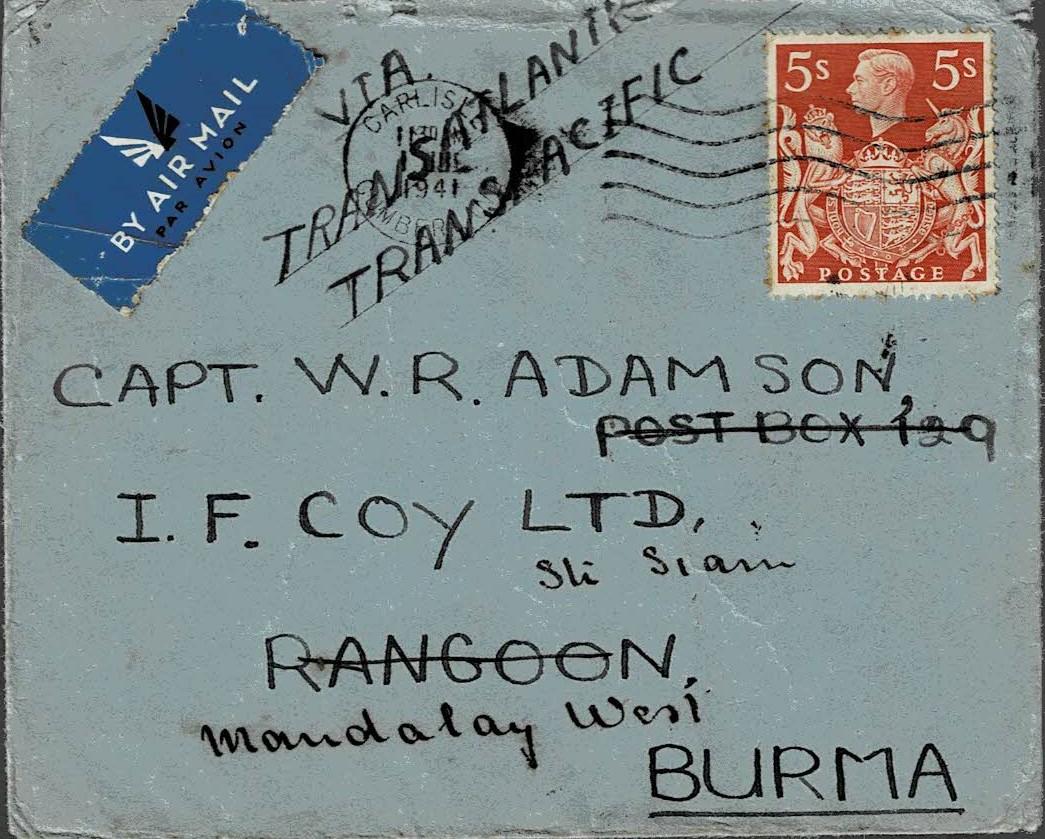 BY AIR MAIL
PAR AVION
VIA.
TRANSATLANTIC
TRANSPACIFIC
CARLISLE
1941
5s 5s
POSTAGE
CAPT. W. R. ADAMSON,
POST BOX 129
I. F. COY LTD,
Sli Siam
RANGOON,
Mandalay West
BURMA